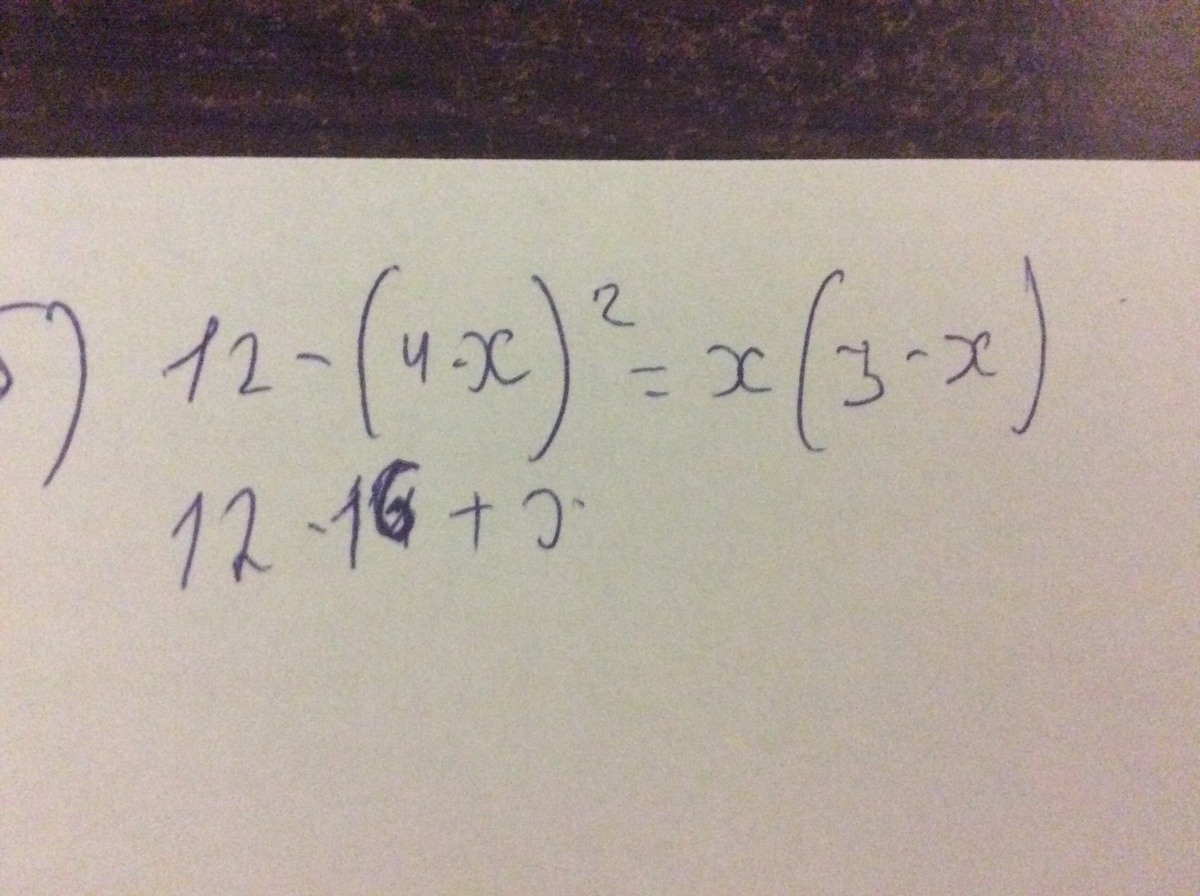 б) 12 - (4 - x)² = x(3 - x)
12 - 16 +